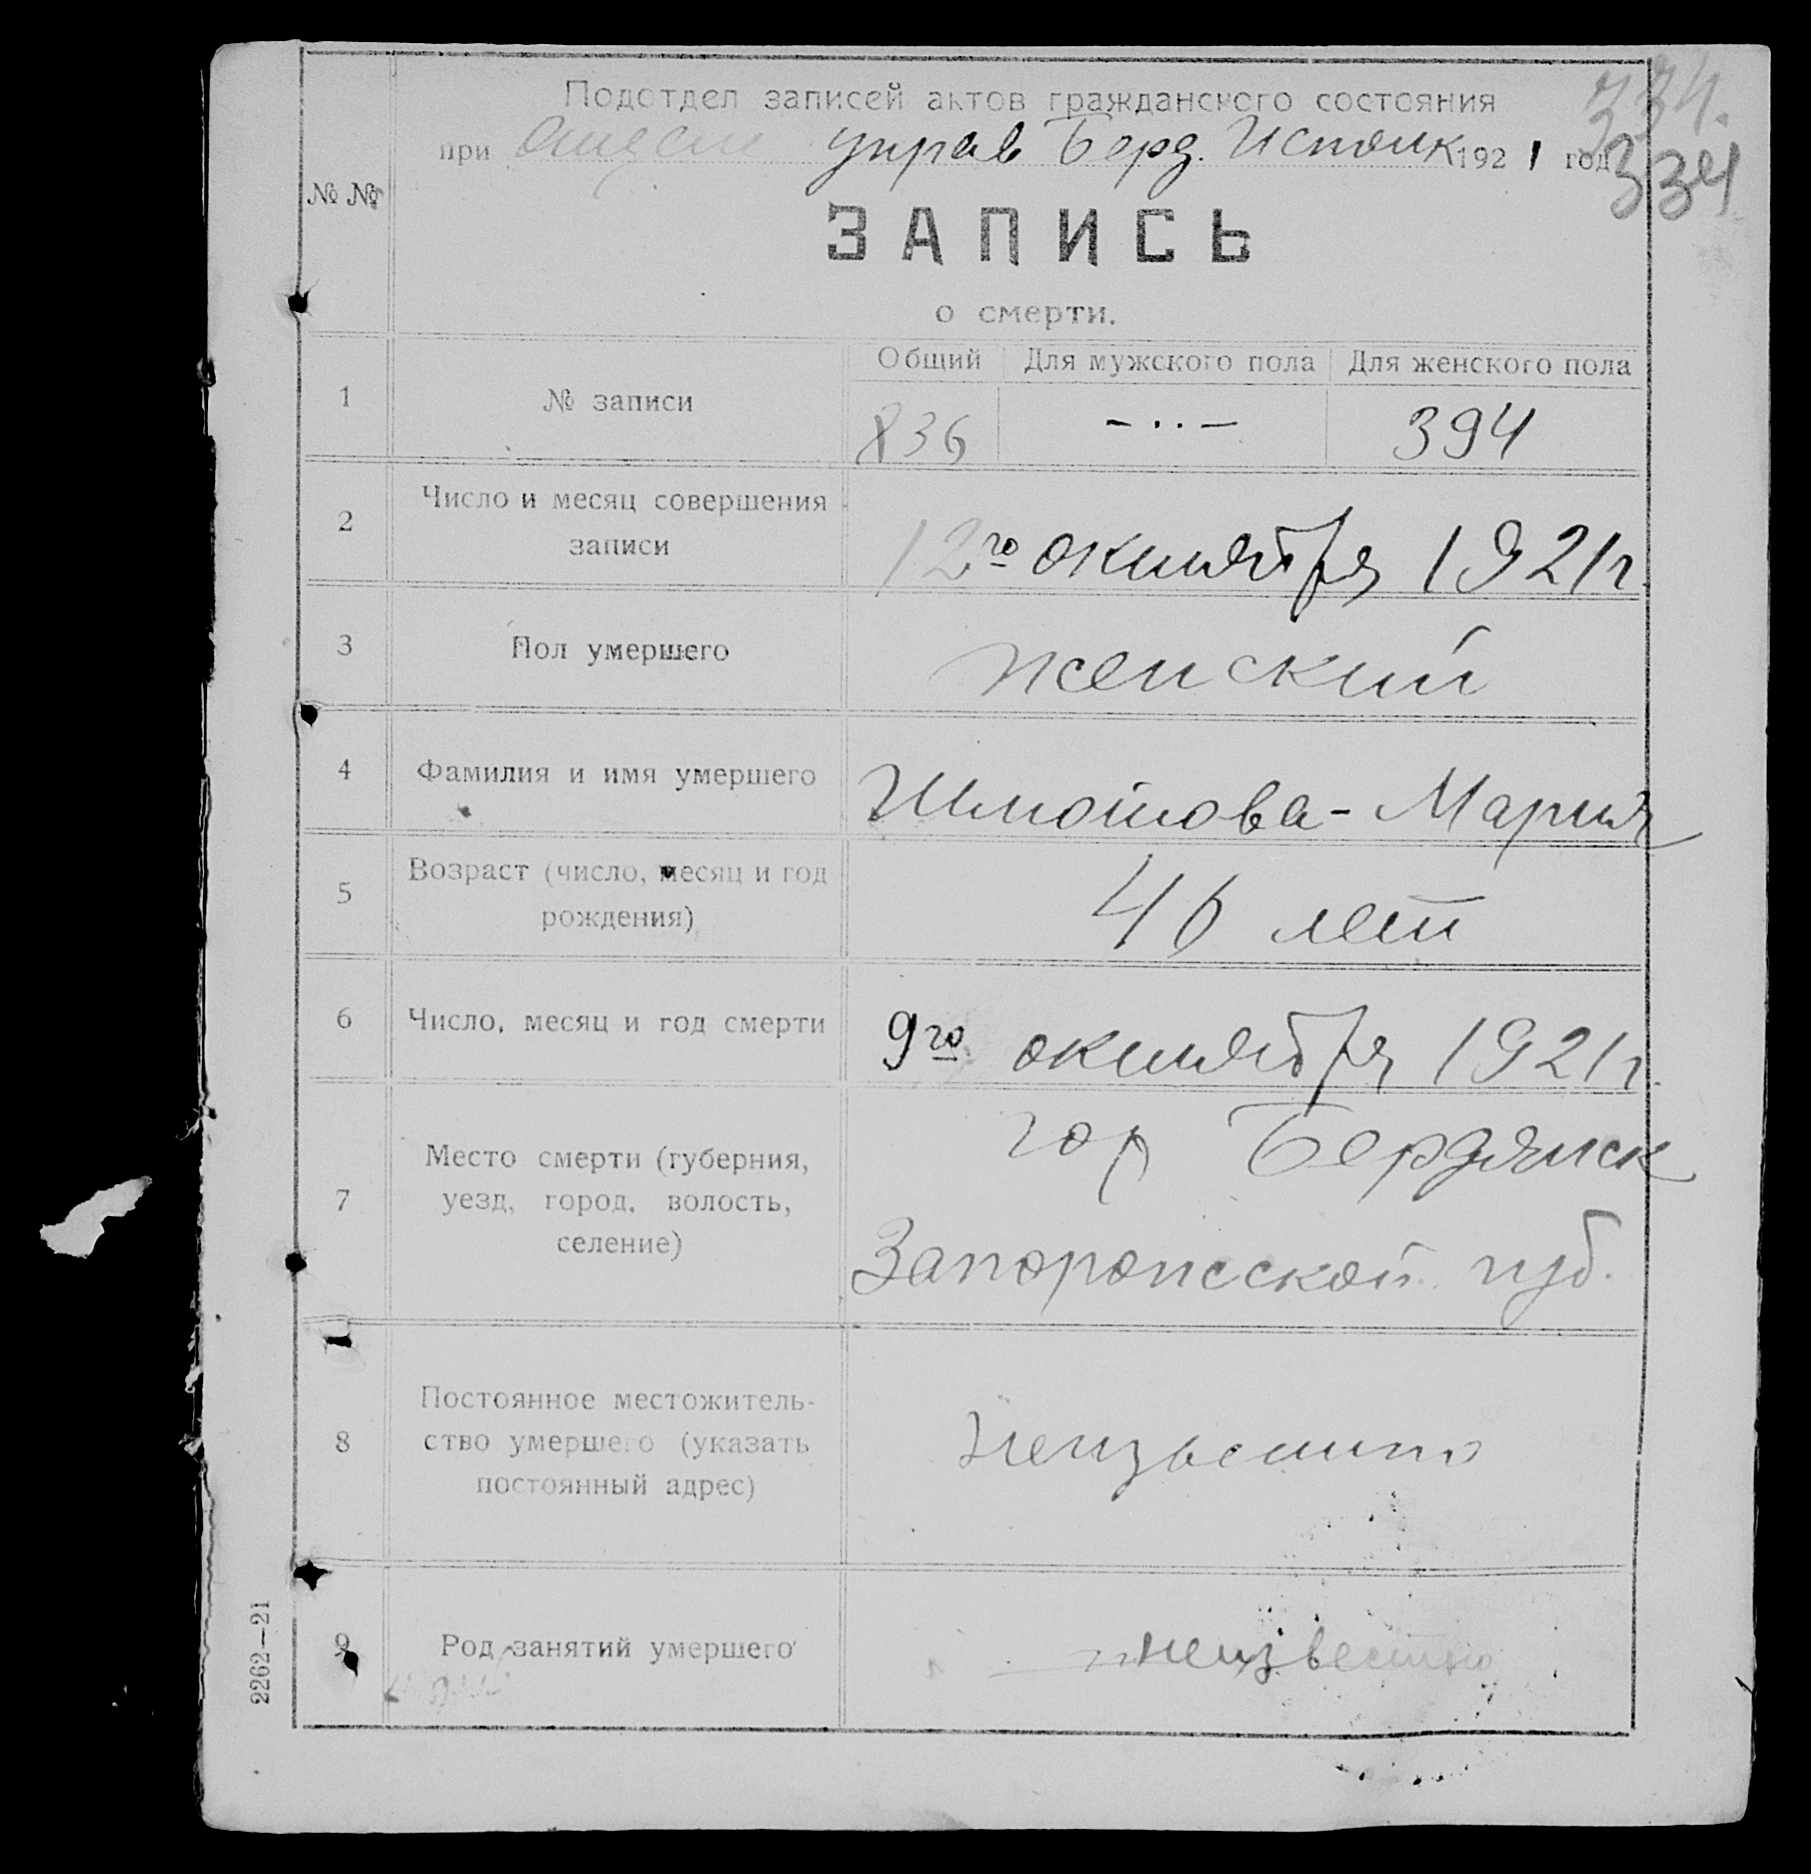 334.
Подотдел записей актов гражданского состояния
при Отделе управ Берд. Исполк 1921 год
334
№ №
ЗАПИСЬ
о смерти.
Общий Для мужского пола Для женского пола
1 № записи 836 - . . - 394
2 Число и месяц совершения
записи 12го октября 1921г.
3 Пол умершего женский
4 Фамилия и имя умершего Мария
5 Возраст (число, месяц и год
рождения) 46 лет
6 Число, месяц и год смерти 9го октября 1921г.
7 Место смерти (губерния,
уезд, город, волость,
селение)
гор Бердянск
Запорожской губ.
8 Постоянное местожитель-
ство умершего (указать
постоянный адрес)
неизвестно
9 Род занятий умершего неизвестно
2262—21